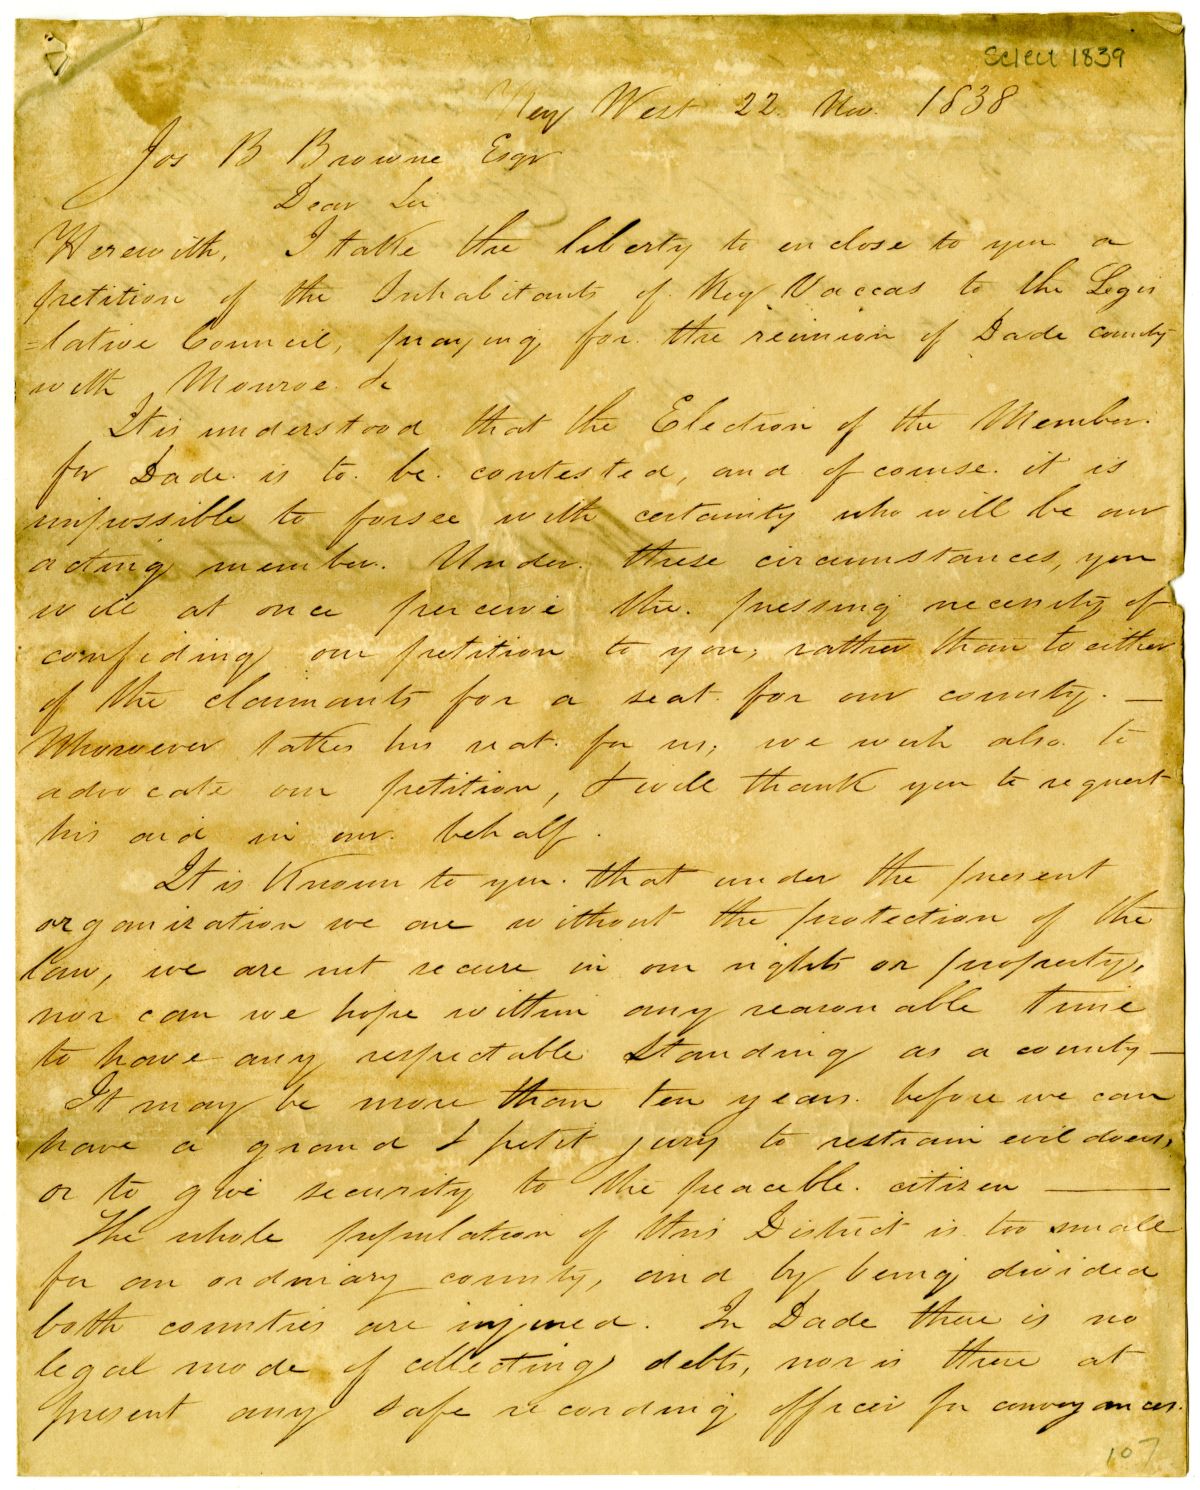 Select 1839
Key West 22. Nov. 1838
Jos B Browne Esqr
Dear Sir
Herewith, I take the liberty to enclose to you a
petition of the Inhabitants of Key Vaccas to the Legis
=lative Council, praying for the reunion of Dade county
with Monroe. &c
It is understood that the Election of the Member.
for Dade. is to. be. contested, and of course. it is
impossible to forsee with certainty who will be our
acting member. Under. these circumstances, you
will at once perceive the. pressing necessity of
confiding our petition to you, rather than to either
of the claimants for a seat. for our county. —
Whosoever takes his seat. for us, we wish also to
advocate our petition, & will thank you to request
his aid in our. behalf.
It is Known to you. that under the present
organization we are without the protection of the
law, we are not secure in our rights or property,
nor can we hope within any reasonable time
to have any respectable standing as a county —
It may be more than ten years. before we can
have a grand & petit jury to restrain evil doers,
or to give security to the peacable. citizen ———
The whole population of this District is too small
for an ordinary county, and by being divided
both counties are injured. In Dade there is no
legal mode of collecting debts, nor is there at
present any safe recording officer for conveyances.
107